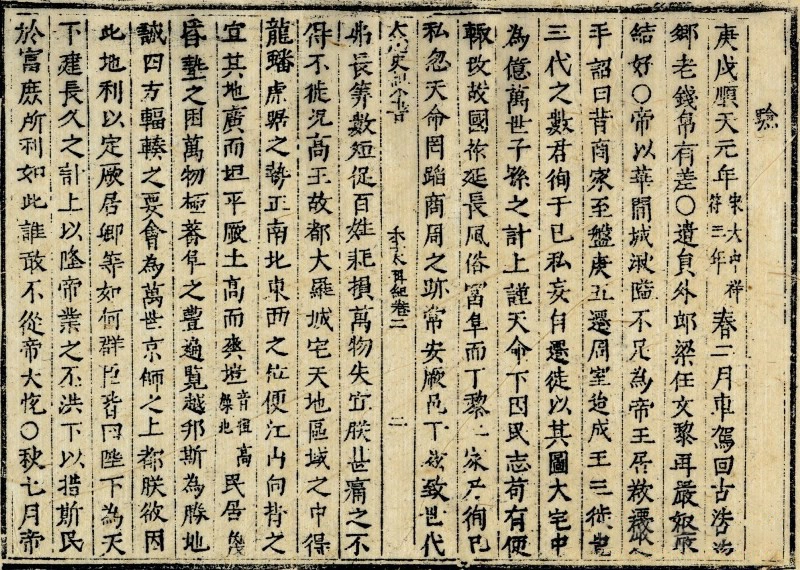 庚戌順天元年宋大中祥符三年春二月車駕回古
鄉老錢帛有差○遣員外郎梁任文黎再嚴如宋
結好○帝以華閭城湫隘不足為帝王居欲遷之
手詔曰昔商家至盤庚五遷周室迨成王三徙豈
三代之數君徇于己私妄自遷徙以其圖大宅中
為億萬世子孫之計上謹天命下因民志苟有便
輒改故國祚延長風俗富阜而丁黎二家乃徇己
私忽天命罔蹈商周之跡常安厥邑于茲致世代
大越史記全書 李太祖紀卷二 二
弗長算數短促百姓耗損萬物失宜朕甚痛之不
得不徙況高王故都大羅城宅天地區域之中得
龍蟠虎踞之勢正南北東西之位便江山向背之
宜其地廣而坦平厥土高而爽塏音 高燥也民居蔑
昏墊之困萬物極蕃阜之豐遍覽越邦斯為勝地
誠四方輻輳之要會為萬世京師之上都朕欲因
此地利以定厥居卿等如何群臣皆曰陛下為天
下建長久之計上以隆帝業之丕洪下以措斯民
於富庶所利如此誰敢不從帝大悅○秋七月帝